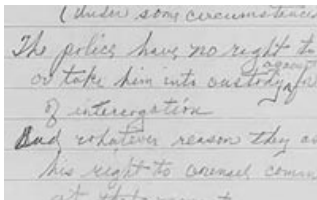 (Under some circumstances
The police have no right to
again
or take him into custody for
of interrogation
And whatever reason they
his right to counsel comm
at that